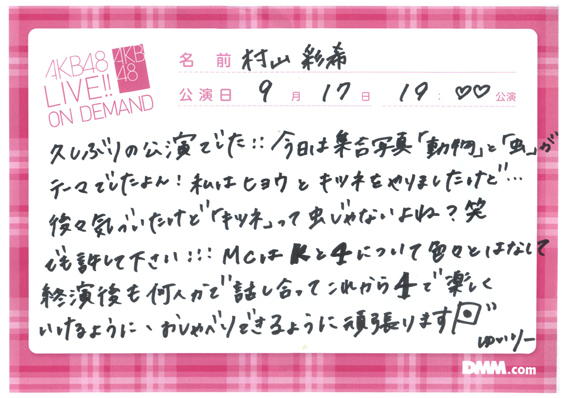 AKB48
LIVE!!
ON DEMAND
AKB
48
名前 村山彩希
公演日 9月17日 19:♡♡公演
久しぶりの公演でした!! 今日は集合写真「動物」と「虫」が
テーマでしたよん! 私はヒョウとキツネをやりましたけど…
後々気づいたけど「キツネ」って虫じゃないよね?笑
でも許して下さい!!! MCはKと4について色々とはなして
終演後も何人かで話し合ってこれから4で楽しく
いけるように、おしゃべりできるように頑張ります
ゆいりー
DMM.com